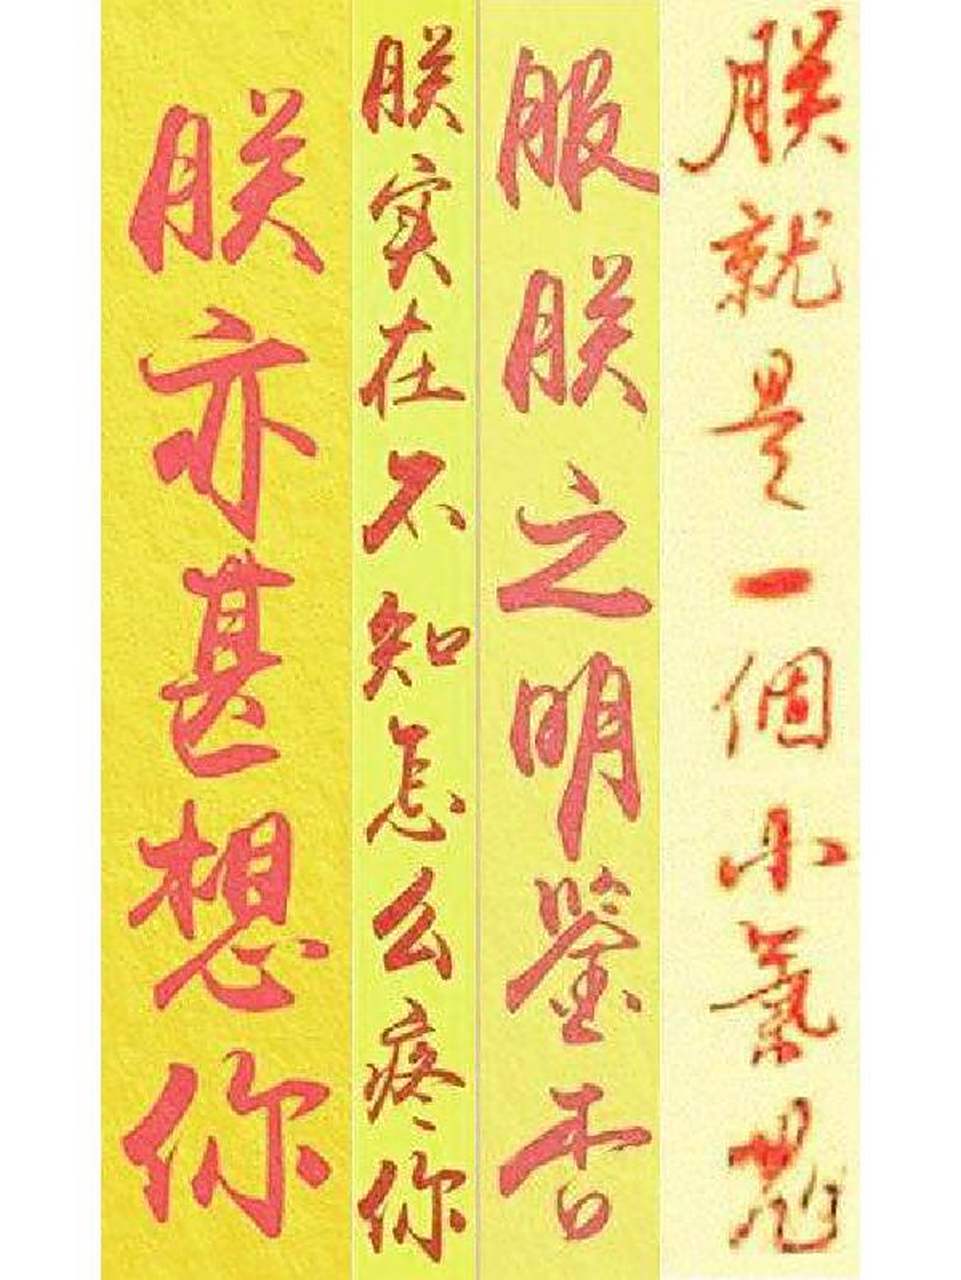 朕亦甚想你
朕实在不知怎么疼你
服朕之明鉴否
朕就是一個小氣鬼